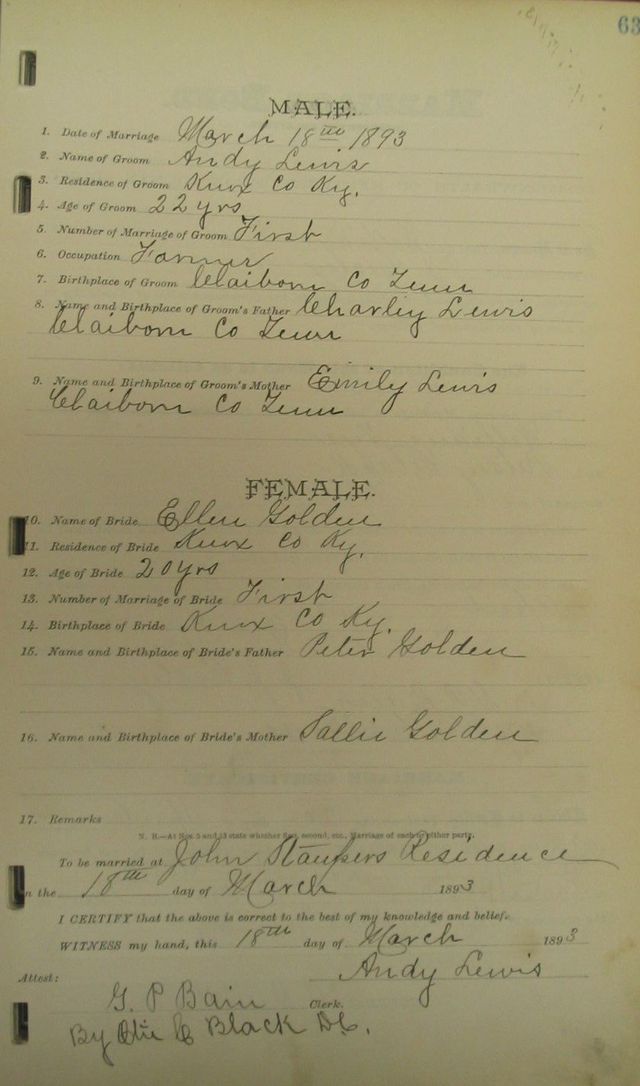 63
MALE.
1. Date of Marriage March 18th 1893
2. Name of Groom Andy Lewis
3. Residence of Groom Knox Co Ky.
4. Age of Groom 22 yrs
5. Number of Marriage of Groom First
6. Occupation Farmer
7. Birthplace of Groom Claiborn Co Tenn
8. Name and Birthplace of Groom's Father Charley Lewis
Claiborn Co Tenn
9. Name and Birthplace of Groom's Mother Emily Lewis
Claiborn Co Tenn
FEMALE.
10. Name of Bride Ellen Golden
11. Residence of Bride Knox Co Ky.
12. Age of Bride 20 yrs
13. Number of Marriage of Bride First
14. Birthplace of Bride Knox Co Ky.
15. Name and Birthplace of Bride's Father Peter Golden
16. Name and Birthplace of Bride's Mother Sallie Golden
17. Remarks
N. B.—At Nos. 5 and 13 state whether first, second, etc., Marriage of each or either party.
To be married at John Residence
on the 18th day of March 1893
I CERTIFY that the above is correct to the best of my knowledge and belief.
WITNESS my hand, this 18th day of March 1893
Andy Lewis
Attest:
G. P Bain Clerk.
By C Black D.C.